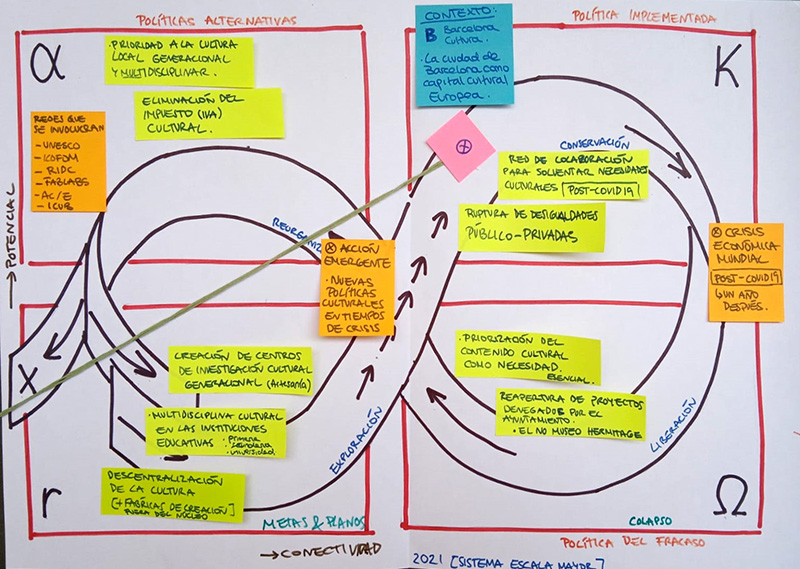 POLÍTICAS ALTERNATIVAS
α
·PRIORIDAD A LA CULTURA
LOCAL GENERACIONAL
Y MULTIDISCIPLINAR.
ELIMINACIÓN DEL
IMPUESTO (IVA)
CULTURAL.
REDES QUE
SE INVOLUCRAN
- UNESCO
- ICOFOM
- RIDC
- FABLABS
- AC/E
- ICUB
→ POTENCIAL
REORGANIZ
CONTEXTO:
B Barcelona
Cultura.
· La ciudad de
Barcelona como
capital cultural
Europea.
POLÍTICA IMPLEMENTADA
K
CONSERVACIÓN
RED DE COLABORACIÓN
PARA SOLVENTAR NECESIDADES
CULTURALES [POST-COVID19]
RUPTURA DE DESIGUALDADES
PÚBLICO-PRIVADAS
ⓧ ACCIÓN
EMERGENTE
· NUEVAS
POLÍTICAS
CULTURALES
EN TIEMPOS
DE CRISIS
ⓧ CRISIS
ECONÓMICA
MUNDIAL
[POST-COVID19]
UN AÑO
DESPUÉS.
X
CREACIÓN DE CENTROS
DE INVESTIGACIÓN CULTURAL
GENERACIONAL (Artesanía)
·MULTIDISCIPLINA CULTURAL
EN LAS INSTITUCIONES
EDUCATIVAS
· primaria
· secundaria
· universidad
DESCENTRALIZACIÓN
DE LA CULTURA
[+FÁBRICAS DE CREACIÓN]
FUERA DEL NÚCLEO
r
EXPLORACIÓN
METAS & PLANOS
→ CONECTIVIDAD
·PRIORIZACIÓN DEL
CONTENIDO CULTURAL
COMO NECESIDAD.
ESENCIAL.
REAPERTURA DE PROYECTOS
DENEGADOS POR EL
AYUNTAMIENTO.
· EL NO MUSEO HERMITAGE
LIBERACIÓN
Ω
COLAPSO
POLÍTICA DEL FRACASO
2021 [SISTEMA ESCALA MAYOR]